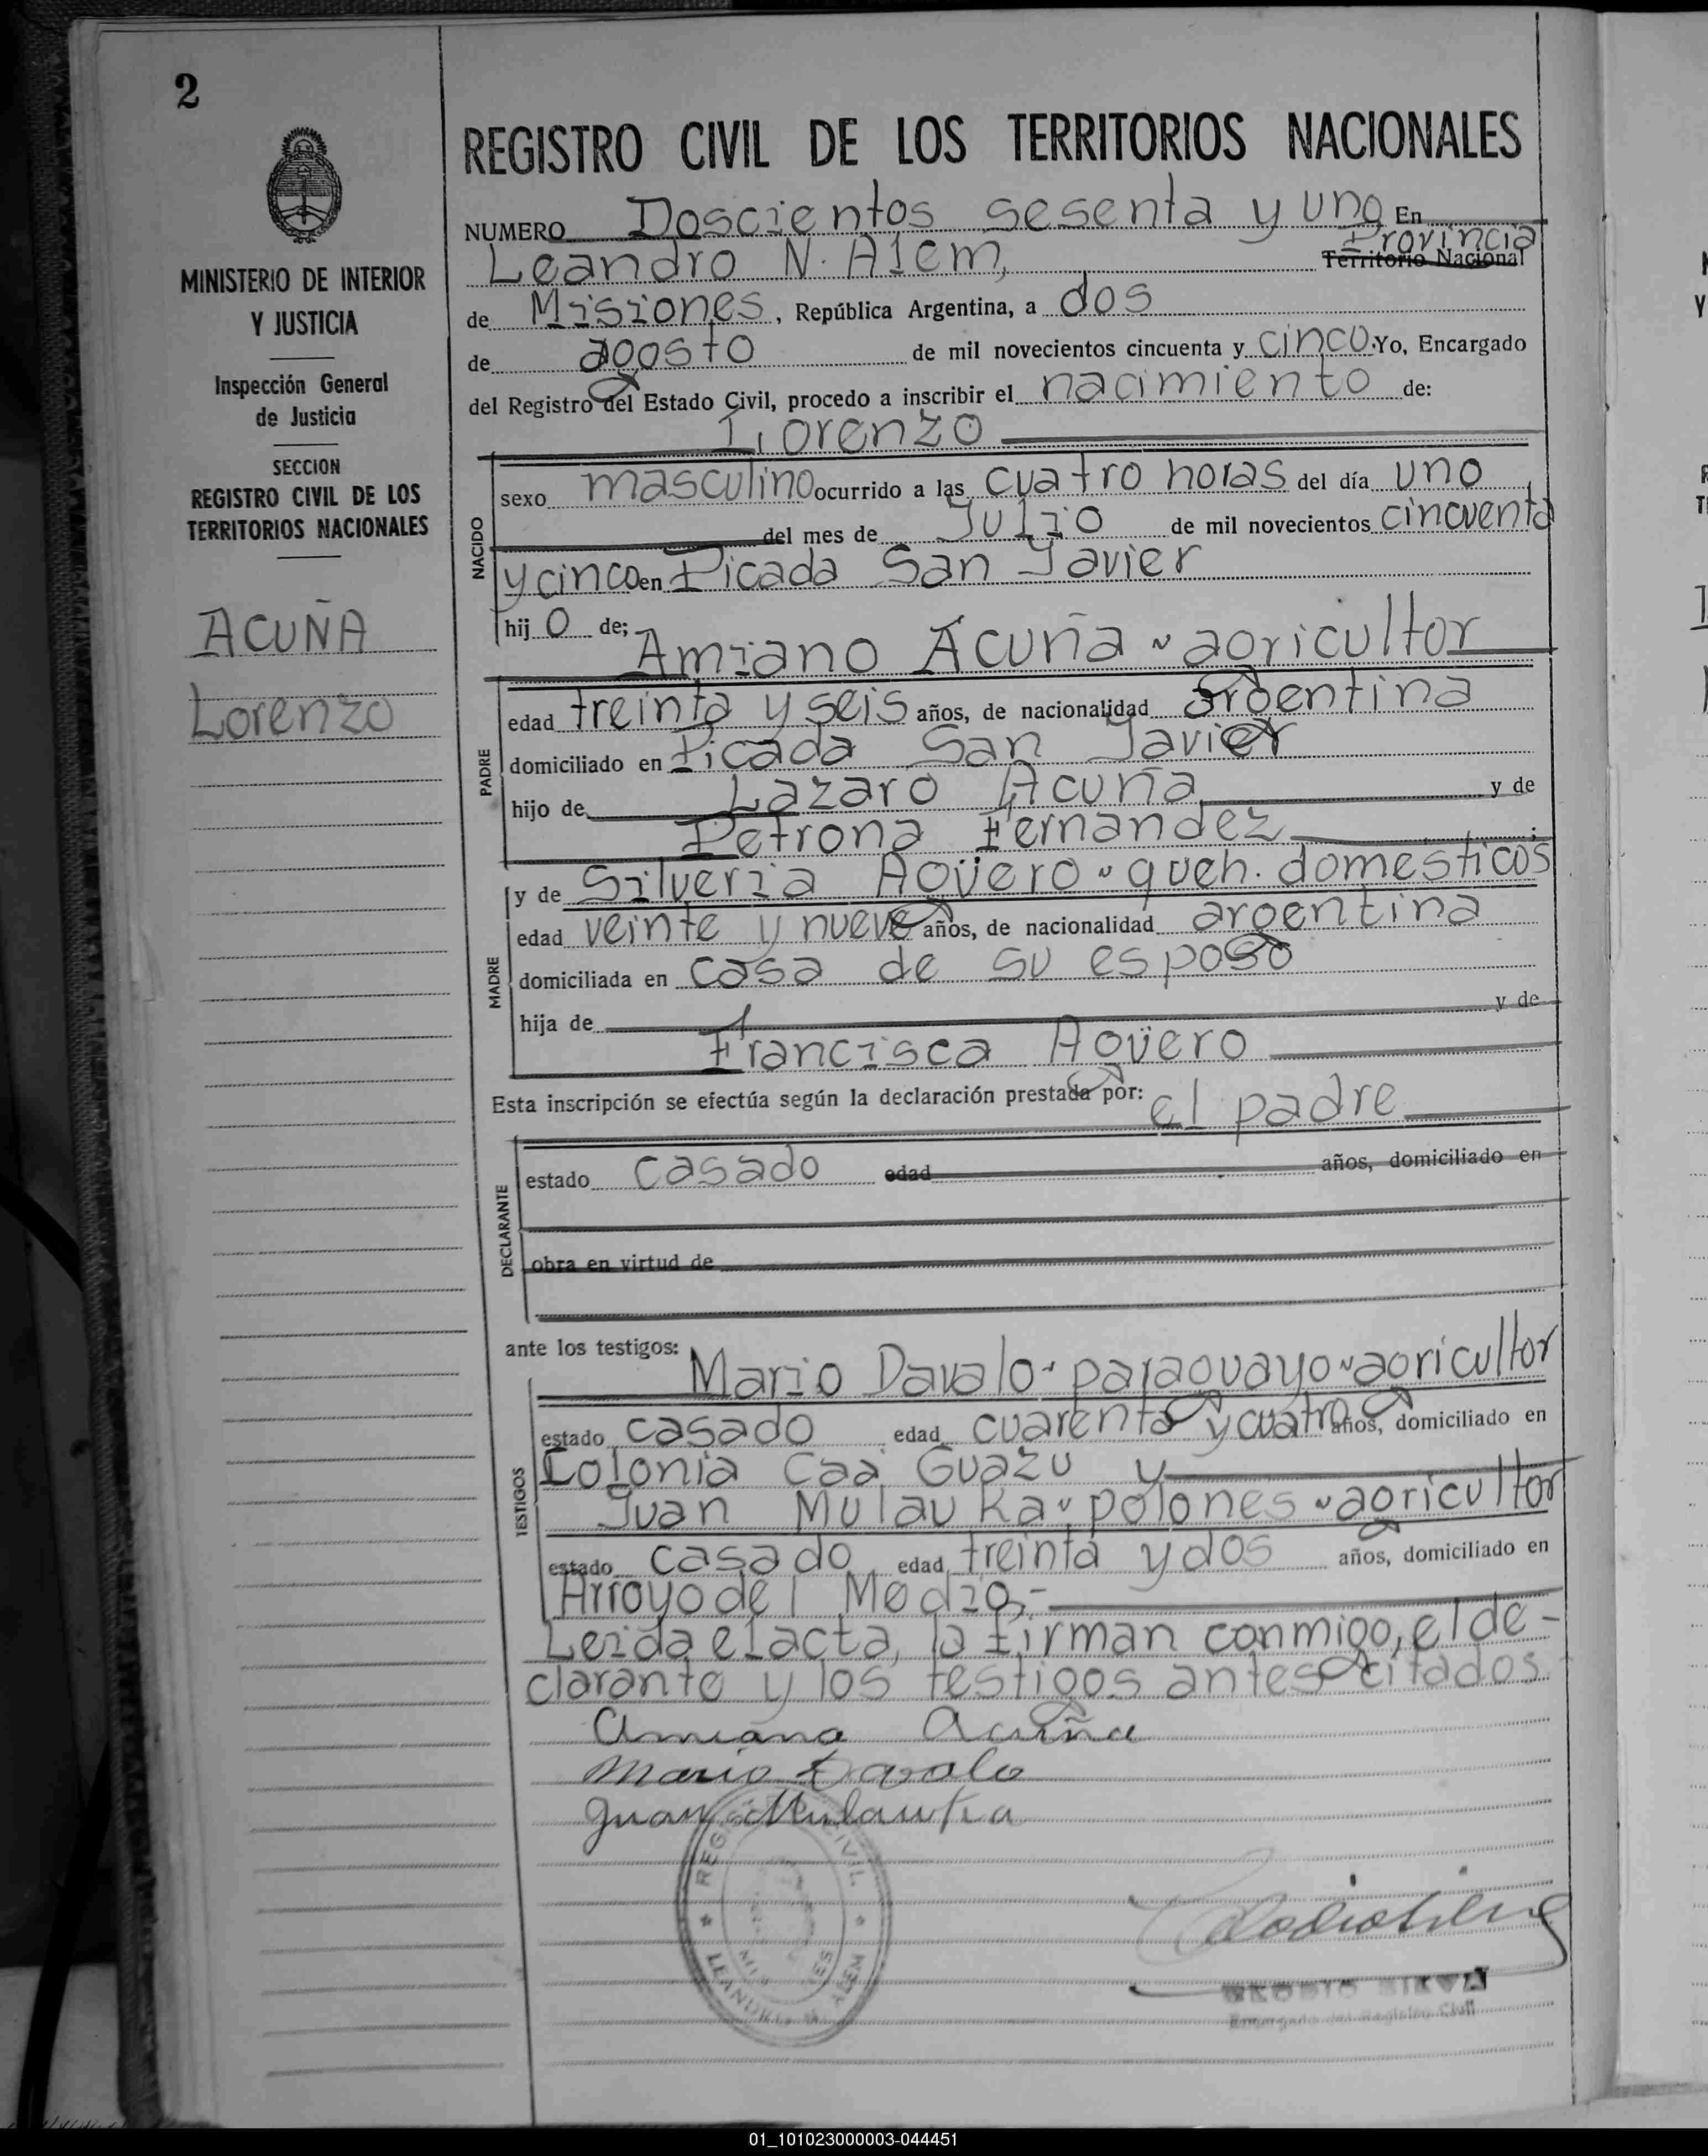 2
MINISTERIO DE INTERIOR
Y JUSTICIA
Inspección General
de Justicia
SECCION
REGISTRO CIVIL DE LOS
TERRITORIOS NACIONALES
ACUÑA
Lorenzo
REGISTRO CIVIL DE LOS TERRITORIOS NACIONALES
NUMERO Doscientos sesenta y uno En
Provincia
Leandro N. Alem, Territorio Nacional
de Misiones, República Argentina, a dos
de agosto de mil novecientos cincuenta y cinco. Yo, Encargado
del Registro del Estado Civil, procedo a inscribir el nacimiento de:
Lorenzo
NACIDO
sexo masculino ocurrido a las cuatro horas del día uno
del mes de Julio de mil novecientos cincuenta
y cinco en Picada San Javier
hijo de;
Amiano Acuña ~ agricultor
PADRE
edad treinta y seis años, de nacionalidad argentina
domiciliado en Picada San Javier
hijo de Lazaro Acuña y de
Petrona Fernandez ;
MADRE
y de Silveria Agüero ~ queh. domesticos
edad veinte y nueve años, de nacionalidad argentina
domiciliada en casa de su esposo
hija de y de
Francisca Agüero
Esta inscripción se efectúa según la declaración prestada por: el padre
DECLARANTE
estado casado edad años, domiciliado en
obra en virtud de
ante los testigos:
Mario Davalo ~ paraguayo ~ agricultor
TESTIGOS
estado casado edad cuarenta y cuatro años, domiciliado en
Colonia Caa Guazu y
Juan Mulauka ~ polones ~ agricultor
estado casado edad treinta y dos años, domiciliado en
Arroyo del Medio,-
Leida el acta, la firman conmigo, el de-
clarante y los testigos antes citados
Amiano Acuña
Mario Davalo
Juan Mulauka
REGISTRO CIVIL
LEANDRO N. ALEM
Encargado del Registro Civil
01_101023000003-044451